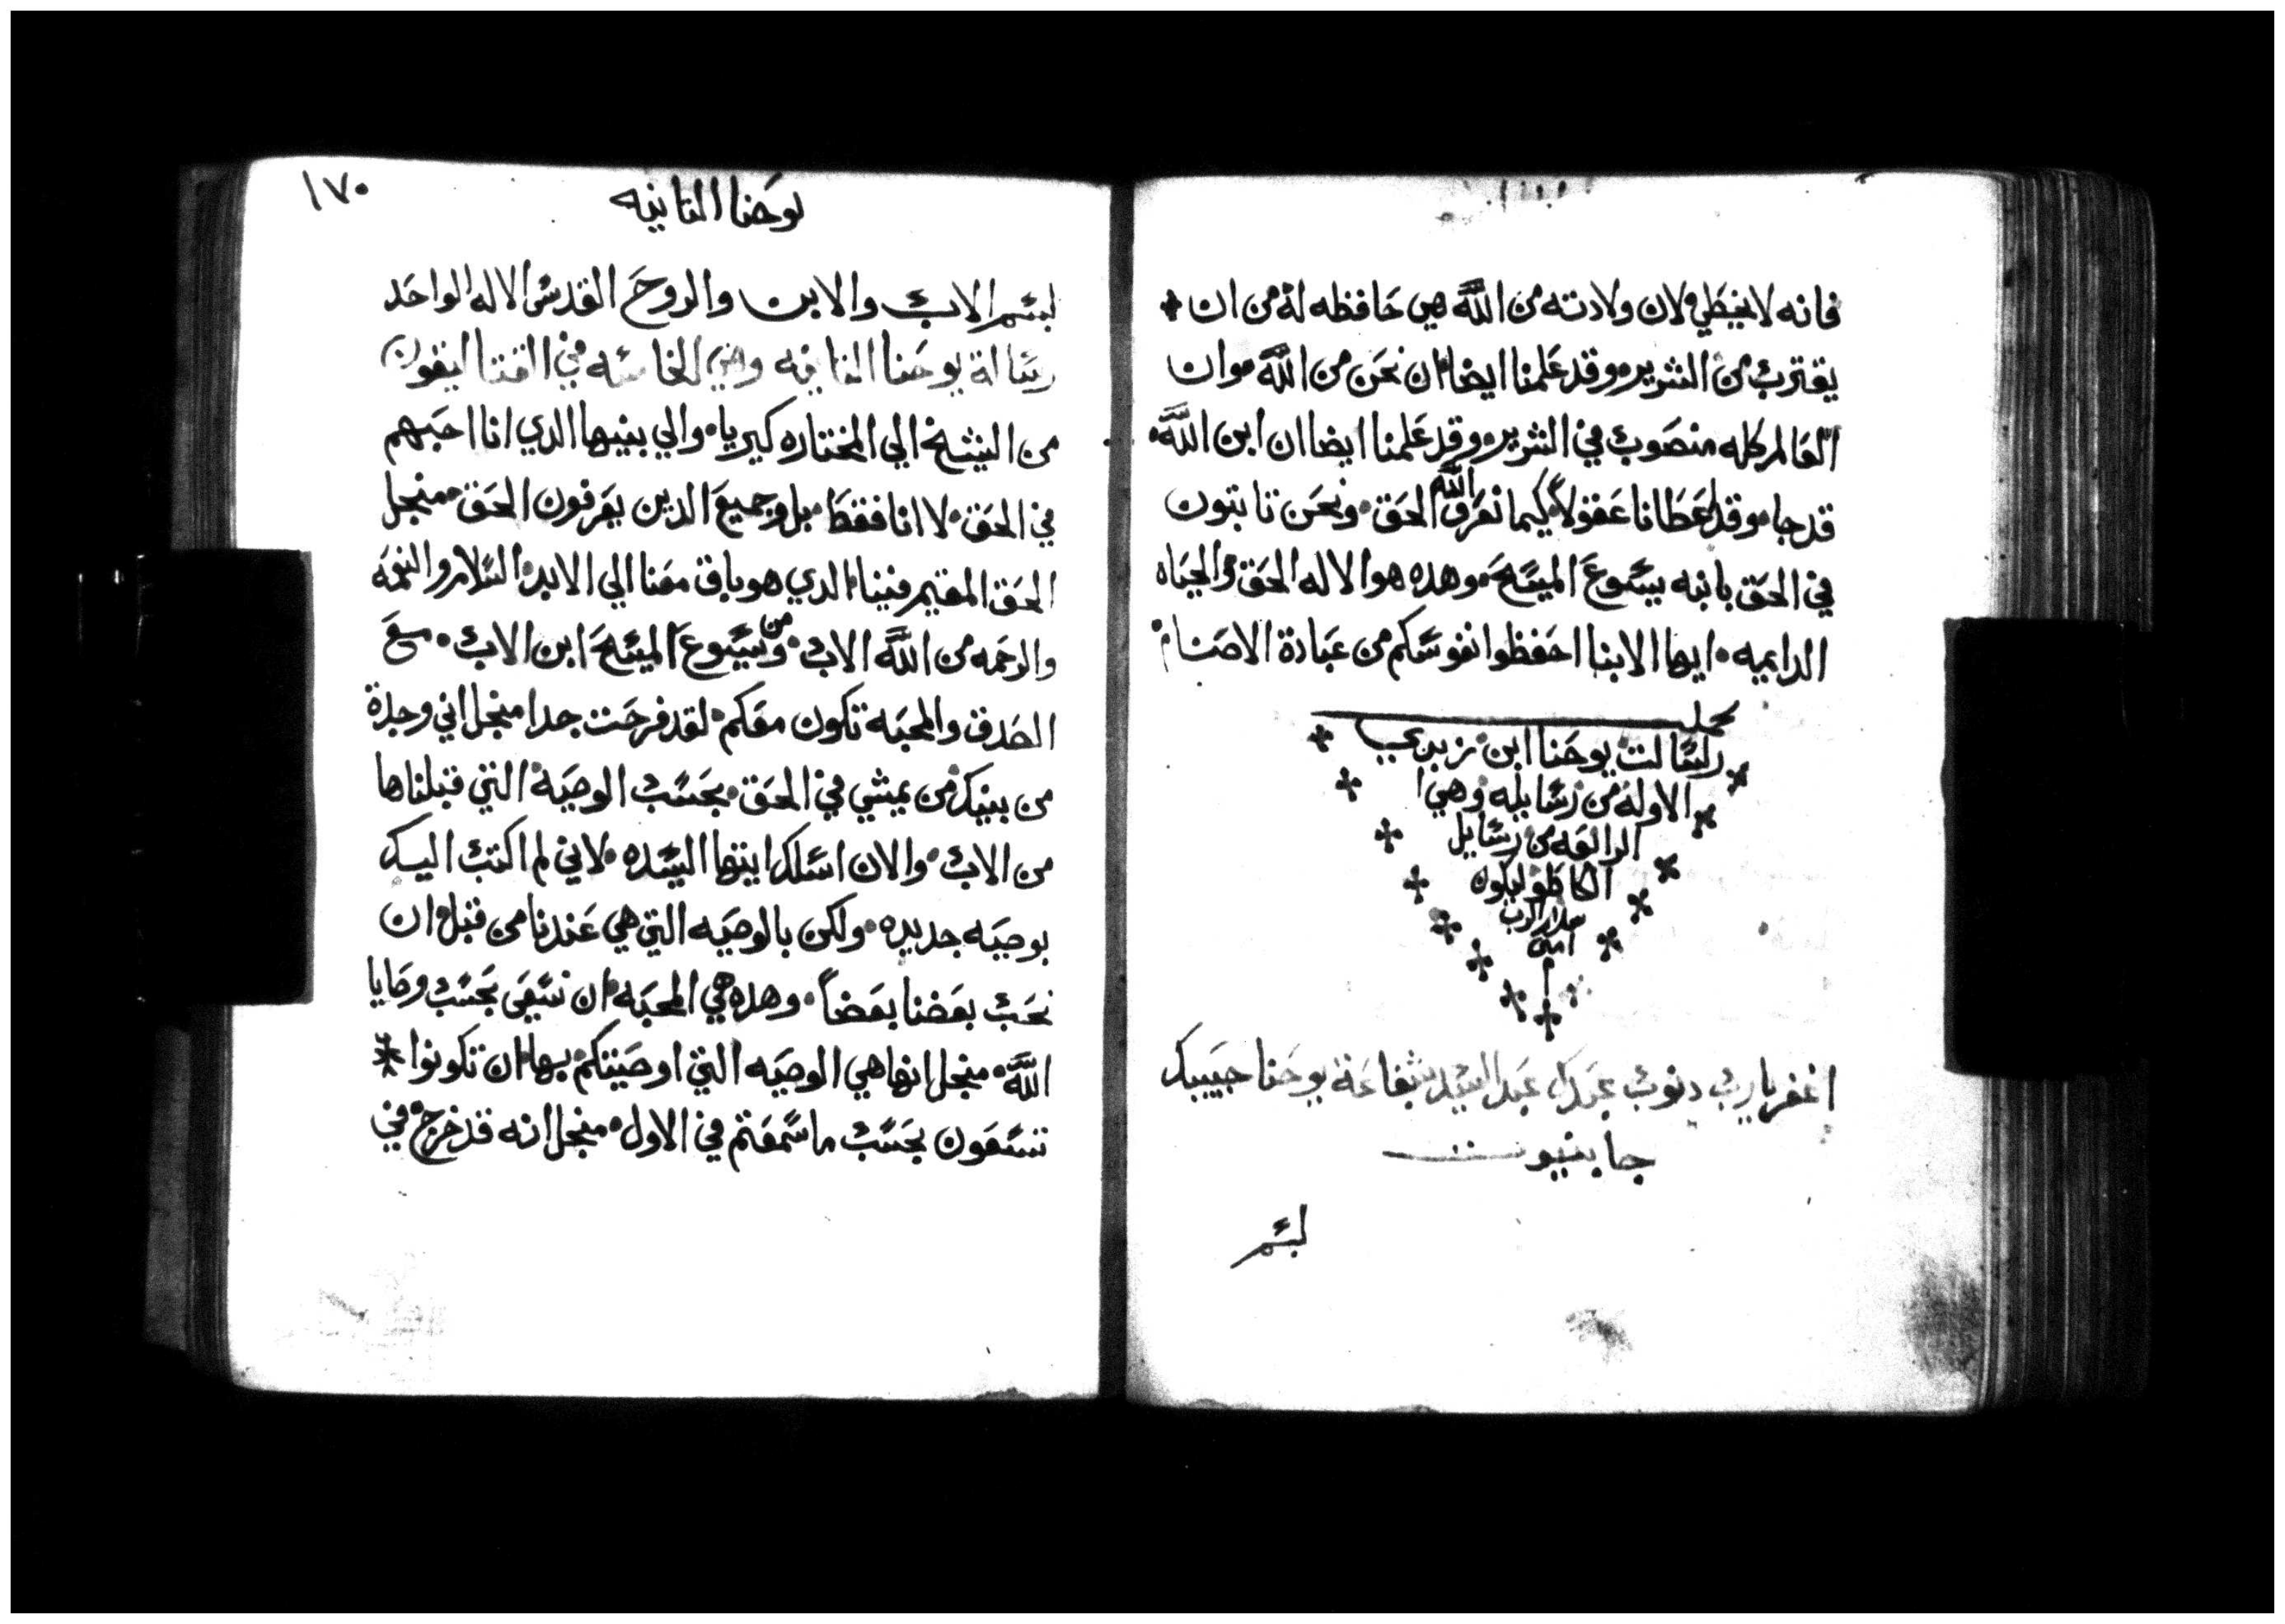 فانه لا يخطي لان ولادته من الله هي حافظه له من ان
يقترب من الشرير وقد علمنا ايضا ان نحن من الله وان
العالم كله منصوب في الشرير وقد علمنا ايضا ان ابن الله
قد جا وقد اعطانا عقولاً كيما نعرف الله الحق ونحن تابتون
في الحق بابنه يسوع المسيح وهده هو الاله الحق والحياه
الدايميه ايها الابنا احفظوا نفوسكم من عبادة الاصنام
كمل
رسالت يوحنا ابن زبدي
الاوله من رسايله وهي
الرابعه من رسايل
الكاطوليكون
بسلام الرب
امين
اغفر يا رب دنوب عبدك عبد السيد شفاعة يوحنا حبيبك
بسم
يوحنا التانيه
١٧٠
بسم الاب والابن والروح القدس الاله الواحد
رسالة يوحنا التانيه وهي الخامسه في القتاليقون
من الشيخ الي المختاره كيريا والي بنيها الدي انا احبهم
في الحق لا انا فقط بل وجميع الدين يعرفون الحق منجل
الحق المقيم فينا الدي هو باق معنا الي الابد السلام والنعمه
والرحمه من الله الاب ومن يسوع المسيح ابن الاب مع
الصدق والمحبه تكون معكم لقد فرحت جدا منجل اني وجدة
من بينك من يمشي في الحق بحسب الوصية التي قبلناها
من الاب والان اسلك ايتها السيده لاني لم اكتب اليك
بوصيه جديده ولكن بالوصيه التي هي عندنا من قبل ان
نحب بعضنا بعضاً وهده هي المحبه ان نسعي بحسب وصايا
الله منجل انها هي الوصيه التي اوصيتكم بها ان تكونوا
تسعون بحسب ما سمعتم في الاول منجل انه قد خرج في